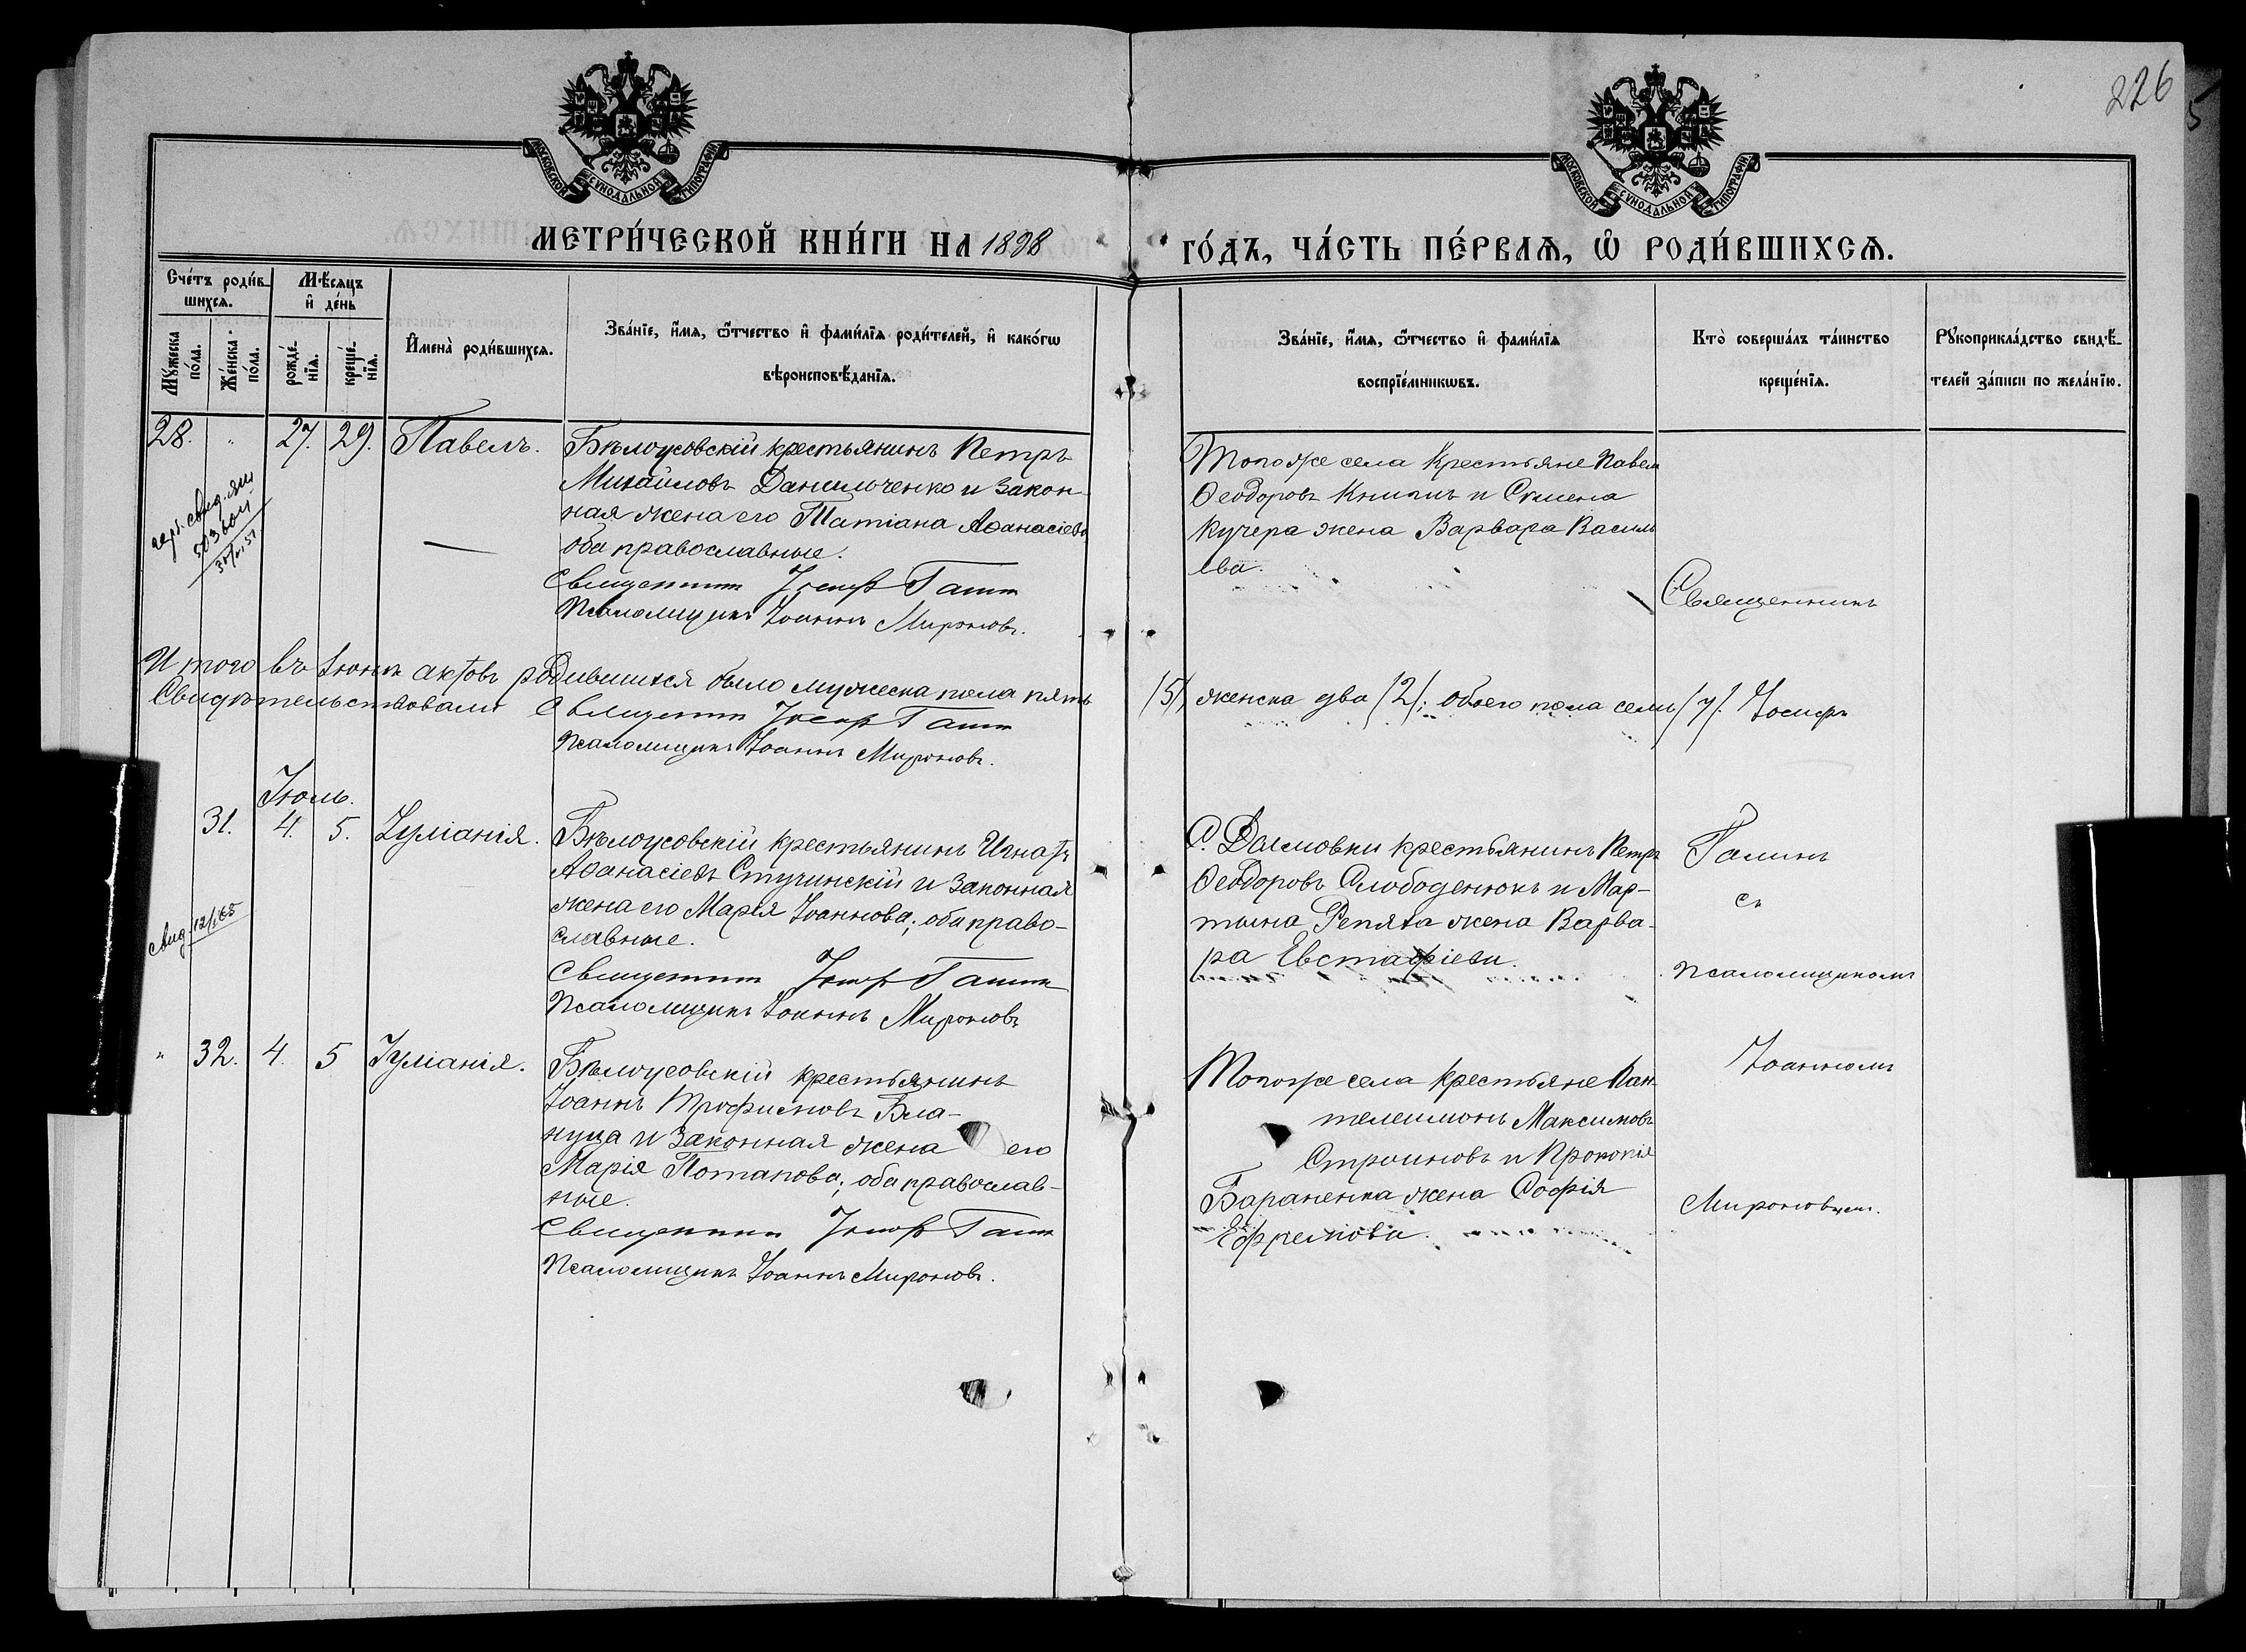 226
5
МОСКОВСКОЙ СУНОДАЛЬНОЙ ТИПОГРАФІИ
МОСКОВСКОЙ СУНОДАЛЬНОЙ ТИПОГРАФІИ
МЕТРИ́ЧЕСКОЙ КНИ́ГИ НА 1898 ГО́ДЪ, ЧА́СТЬ ПЕ́РВАѦ, Ѡ҆ РОДИ́ВШИХСѦ.
Сче́тъ роди́в-
шихсѧ.
Мѣ́сѧцъ
и҆ де́нь
Мꙋ́жеска
по́ла.
Же́нска
по́ла.
рожде́-
нїѧ.
креще́-
нїѧ.
И҆мена̀ роди́вшихсѧ.
Зва́нїе, и҆́мѧ, ѻ҆́тчество и҆ фами́лїѧ роди́телей, и҆ како́гѡ
вѣроисповѣ́данїѧ.
Зва́нїе, и҆́мѧ, ѻ҆́тчество и҆ фами́лїѧ
воспрїе́мникѡвъ.
Кто̀ соверша́лъ та́инство
креще́нїѧ.
Рꙋкоприкла́дство свидѣ́-
телей за́писи по жела́нїю.
28. " 27. 29. Павелъ.
Бѣлоусовскій крестьянинъ Петръ
Михайловъ Данильченко и закон-
ная жена его Татіана Аѳанасіева
оба православные.
Священникъ Іосифъ Галинъ
Псаломщикъ Іоаннъ Мироновъ.
Тогоже села крестьяне Павелъ
Ѳеодоровъ и Семена
Кучера жена Варвара Василь
ева.
Священникъ
Итого въ Іюнѣ актовъ родившихся было мужеска пола пять /5/ женска два /2/; обоего пола семь /7/. Іосифъ
Свидѣтельствовали Священникъ Іосифъ Галинъ
Псаломщикъ Іоаннъ Мироновъ.
Іюль.
31. 4. 5. Іуліанія.
Бѣлоусовскій крестьянинъ Игнатъ
Аѳанасіевъ Стучинскій и законная
жена его Марія Іоаннова; оба право-
славные.
Священникъ Іосифъ Галинъ
Псаломщикъ Іоаннъ Мироновъ
свид. 12/
С. крестьянинъ Петръ
Ѳеодоровъ Слободенюкъ и Мар-
тына Репяха жена Варва-
ра Евстафіева.
Галинъ
съ
псаломщикомъ
" 32. 4. 5 Іуліанія.
Бѣлоусовскій крестьянинъ
Іоаннъ Трофимовъ Бла-
нуца и законная жена его
Марія Потапова; оба православ-
ные.
Священникъ Іосифъ Галинъ
Псаломщикъ Іоаннъ Мироновъ.
Тогоже села крестьяне Пан-
телеимонъ Максимовъ
и Прокопія
Бараненка жена Софія
Ефремова.
Іоанномъ
Мироновымъ.